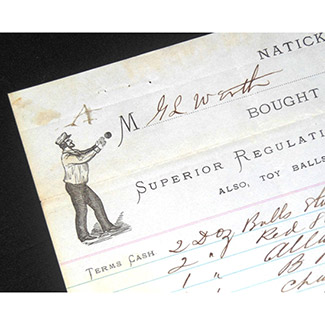 NATICK
M G L Worth
BOUGHT
SUPERIOR REGULATI
ALSO, TOY BALLS
TERMS CASH 2 Doz Balls
2 " Red S
1 " Atla
1 " B